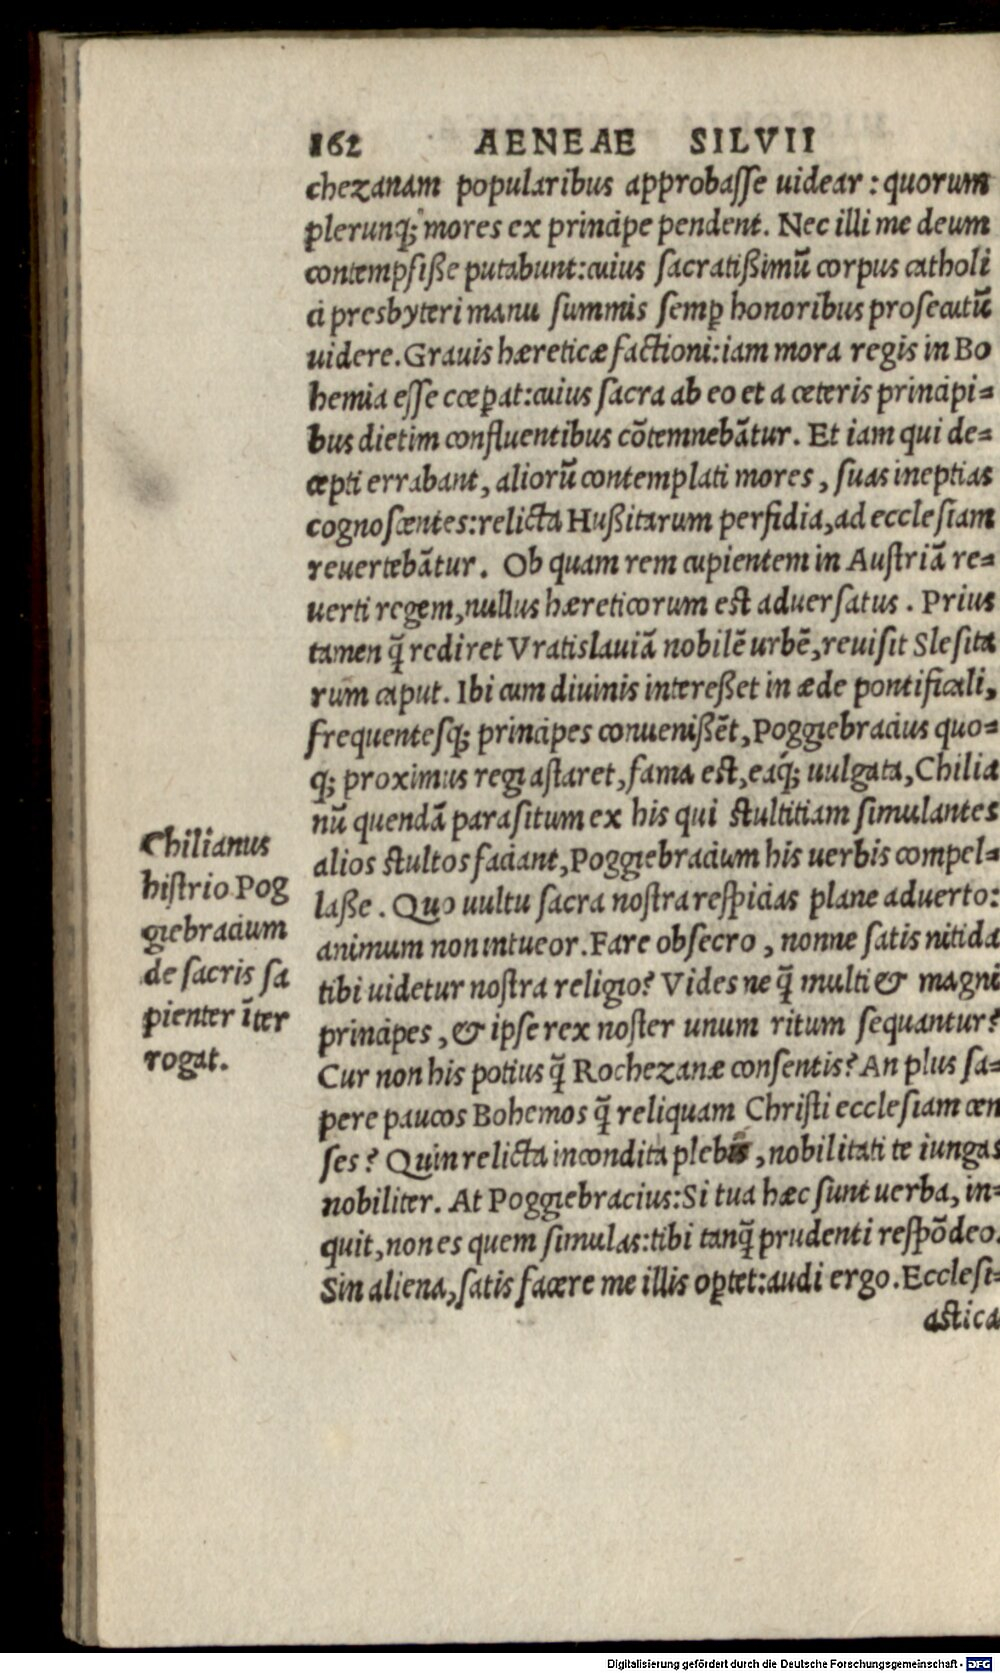 162 AENEAE SILVII
chezanam popularibus approbasse uidear : quorum
plerunq; mores ex principe pendent. Nec illi me deum
contempsiße putabunt:cuius sacratißimũ corpus catholi
ci presbyteri manu summis semꝑ honoribus prosecutũ
uidere. Grauis hæreticæ factioni:iam mora regis in Bo
hemia esse cœꝑat:cuius sacra ab eo et a ceteris principi=
bus dietim confluentibus cõtemnebãtur. Et iam qui de=
cepti errabant, aliorũ contemplati mores, suas ineptias
cognoscentes:relicta Hußitarum perfidia, ad ecclesiam
reuertebãtur. Ob quam rem cupientem in Austriã re=
uerti regem, nullus hæreticorum est aduersatus. Prius
tamen q̃ rediret Vratislauiã nobilẽ urbẽ, reuisit Slesita
rum caput. Ibi cum diuinis intereßet in æde pontificali,
frequentesq; principes conuenißẽt, Poggiebracius quo=
q; proximus regi astaret, fama est, eaq́; uulgata, Chilia
nũ quendã parasitum ex his qui stultitiam simulantes
alios stultos faciant, Poggiebracium his uerbis compel=
laße. Quo uultu sacra nostra respicias plane aduerto:
animum non intueor. Fare obsecro, nonne satis nitida
tibi uidetur nostra religio? Vides ne q̃ multi & magni
principes, & ipse rex noster unum ritum sequantur?
Cur non his potius q̃ Rochezanæ consentis? An plus sa=
pere paucos Bohemos q̃ reliquam Christi ecclesiam cen
ses? Quin relicta incondita plebis, nobilitati te iungas
nobiliter. At Poggiebracius:Si tua hæc sunt uerba, in=
quit, non es quem simulas:tibi tanq̃ prudenti respõdeo.
Sin aliena, satis facere me illis oꝑtet:audi ergo. Ecclesi=
astica
Chilianus
histrio Pog
giebracium
de sacris sa
pienter ĩter
rogat.
Digitalisierung gefördert durch die Deutsche Forschungsgemeinschaft - DFG